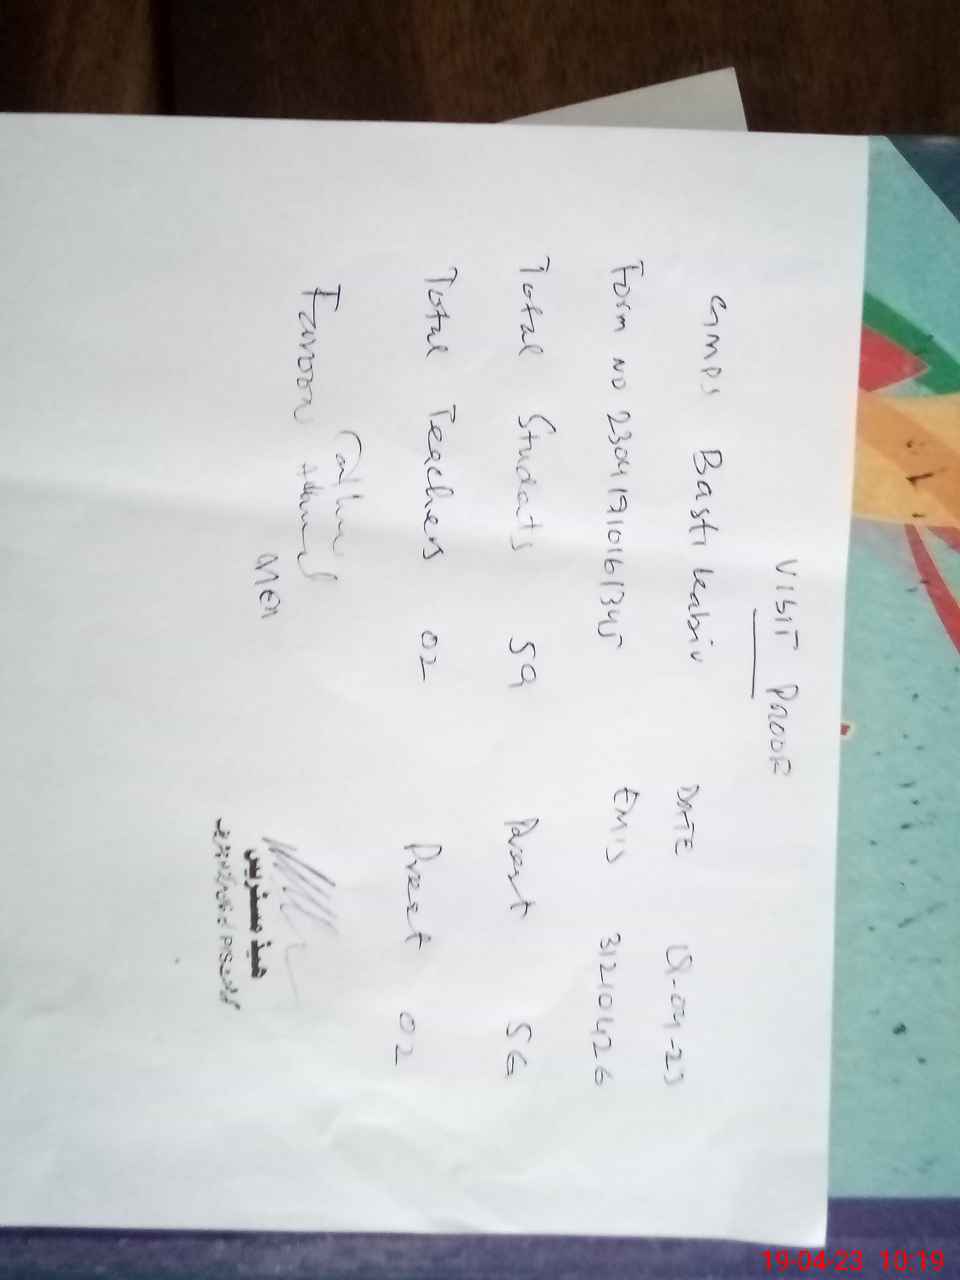 VISIT PROOF
GMPS Basti Kabir DATE 19-04-23
Form NO 23041910161345 EMIS 31210426
Total Students 59 Present 56
Total Teachers 02 Preet 02
Farooq
MEA
ہیڈ مسٹریس
19-04-23 10:19